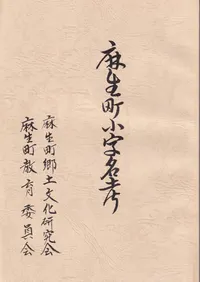 麻生町小字名考
麻生町郷土文化研究会
麻生町教育委員会